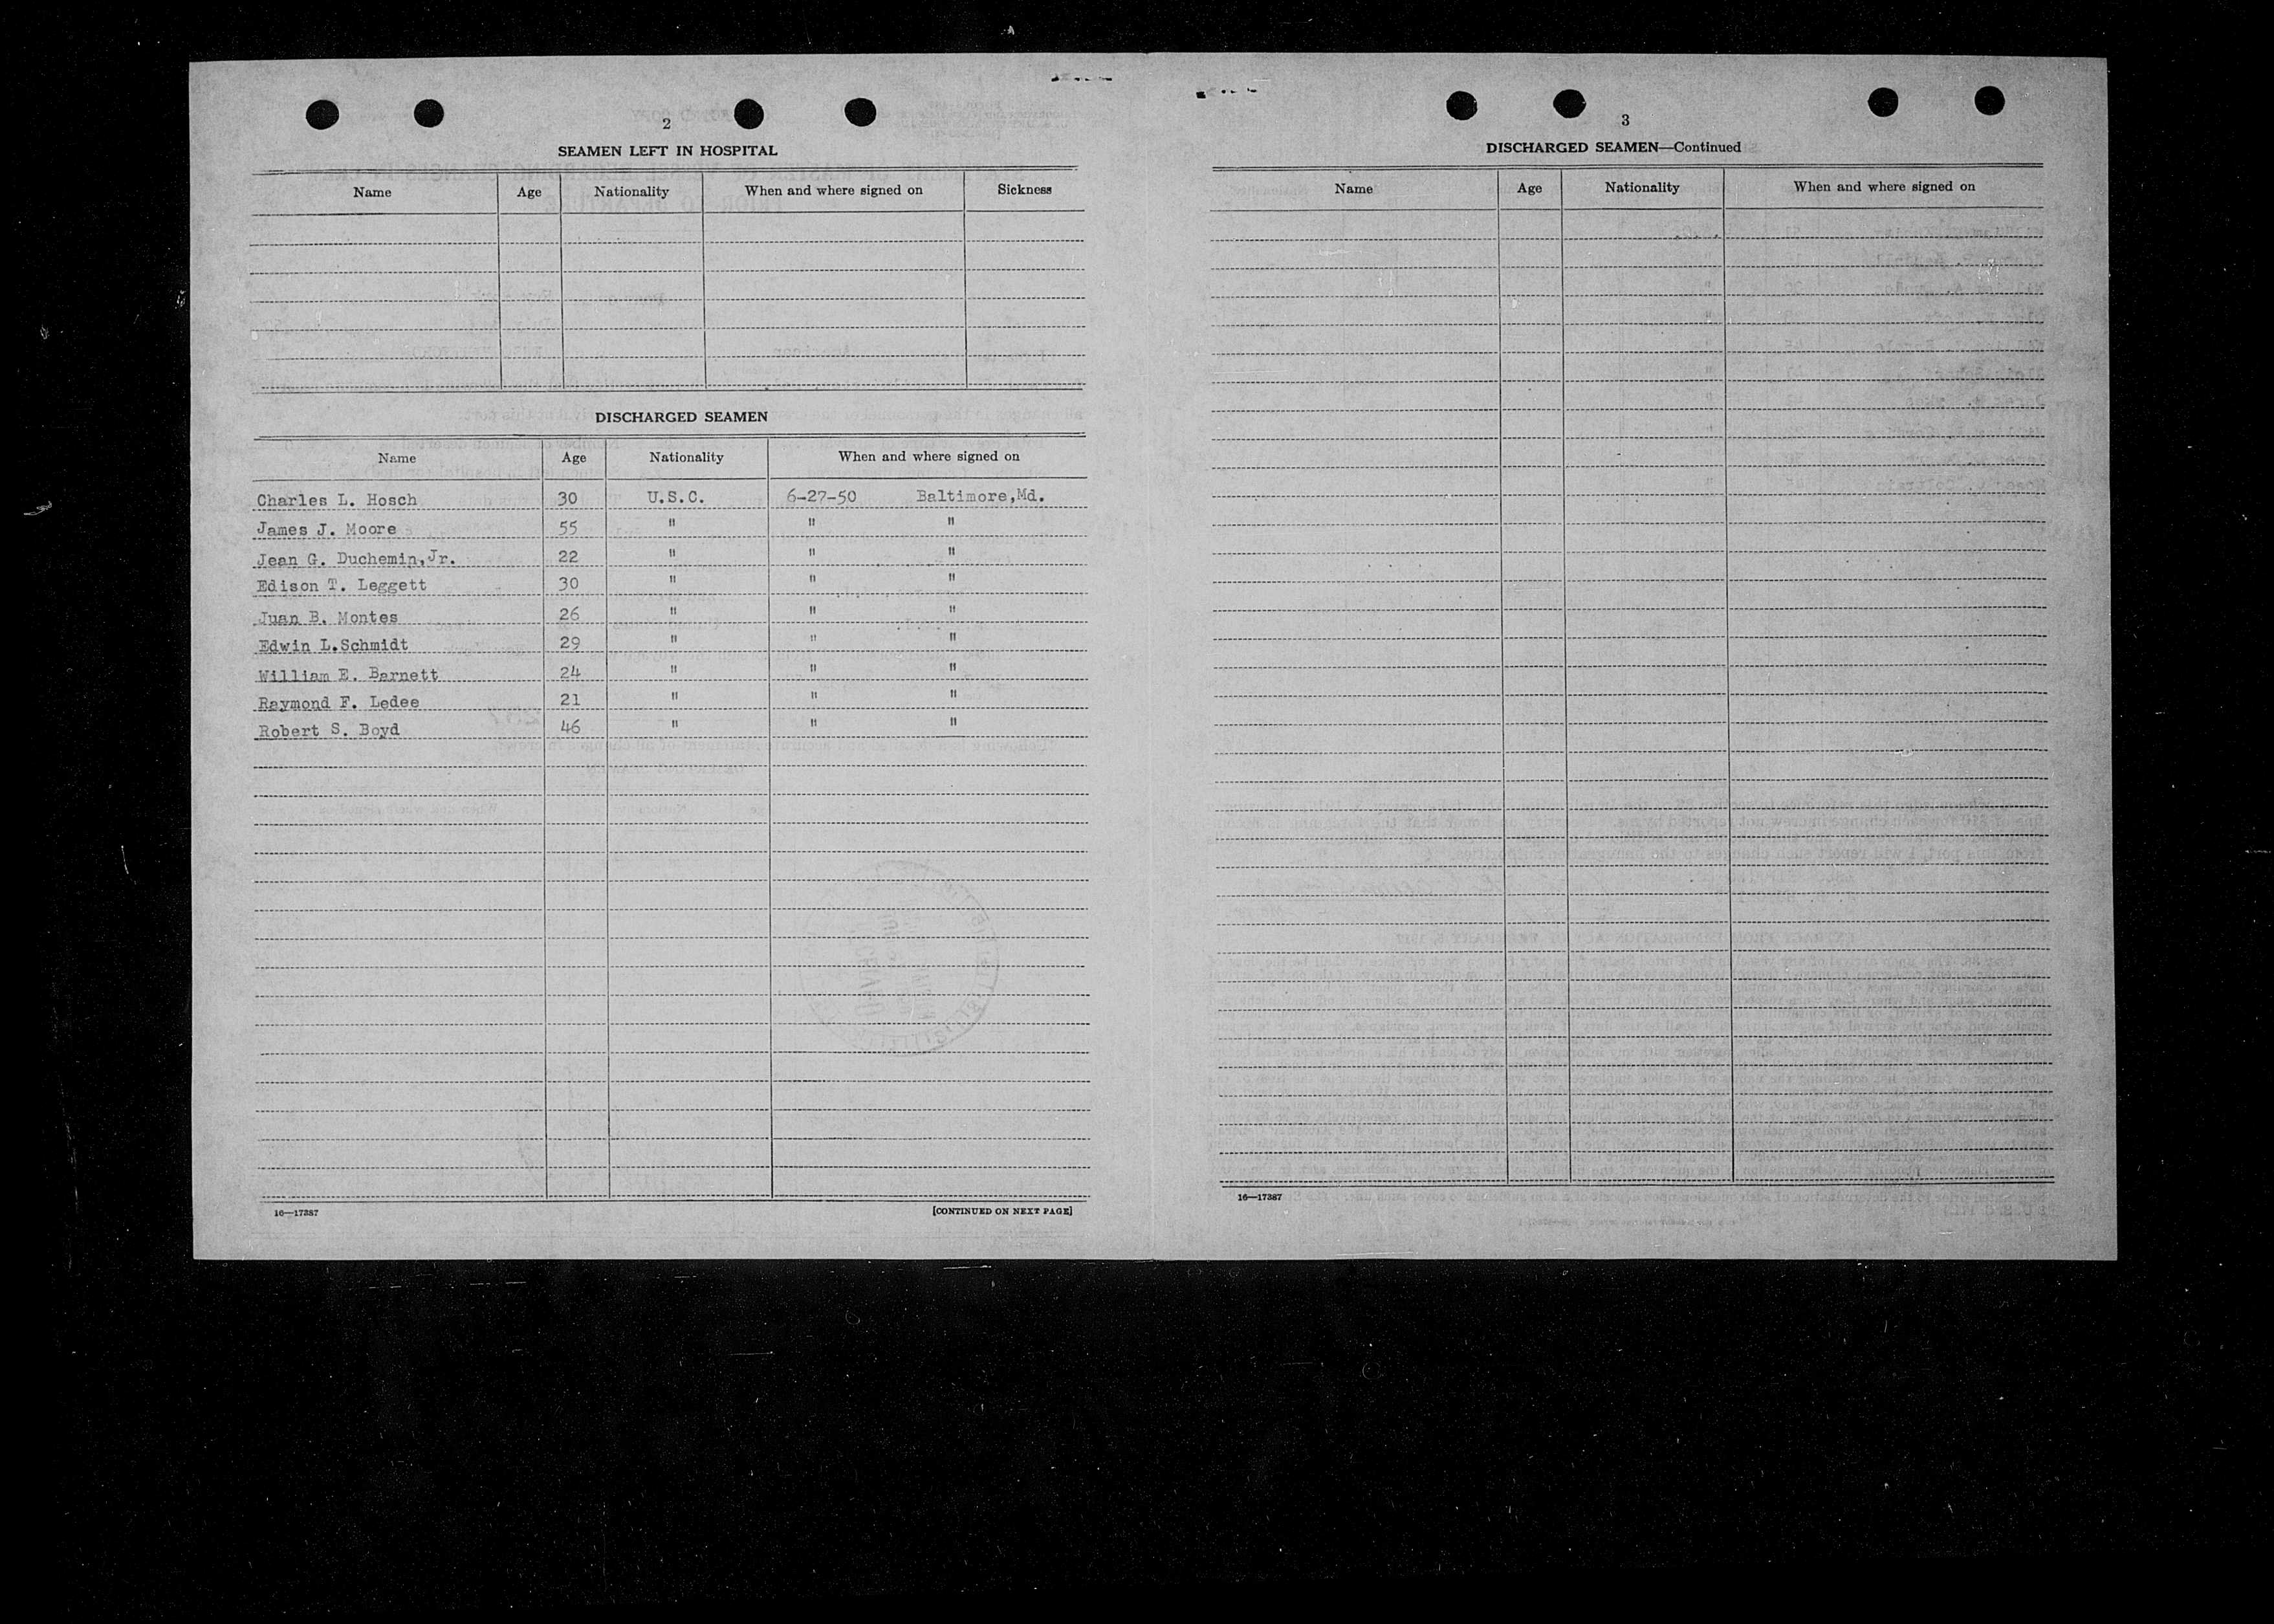 2
SEAMEN LEFT IN HOSPITAL
Name Age Nationality When and where signed on Sickness
DISCHARGED SEAMEN
Name Age Nationality When and where signed on
Charles L. Hosch 30 U.S.C. 6-27-50 Baltimore,Md.
James J. Moore 55 " " "
Jean G. Duchemin,Jr. 22 " " "
Edison T. Leggett 30 " " "
Juan B. Montes 26 " " "
Edwin L.Schmidt 29 " " "
William E. Barnett 24 " " "
Raymond F. Ledee 21 " " "
Robert S. Boyd 46 " " "
16—17387 [CONTINUED ON NEXT PAGE]
3
DISCHARGED SEAMEN—Continued
Name Age Nationality When and where signed on
16—17387